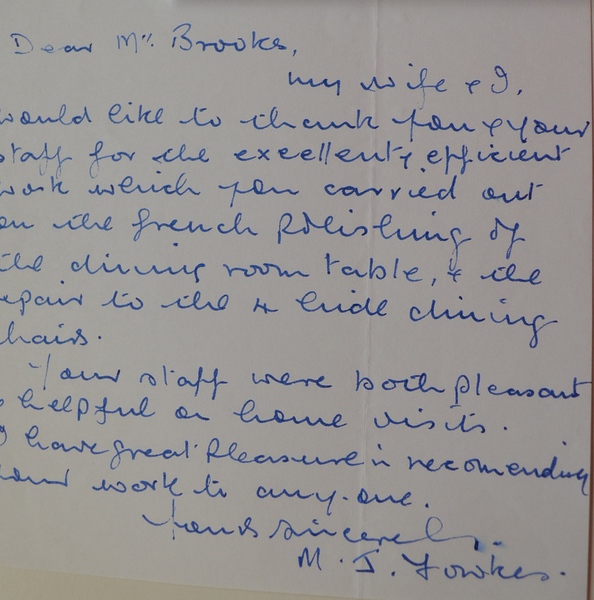 Dear Mr. Brooks,
my wife & I,
would like to thank you & your
staff for the excellent & efficient
work which you carried out
on the french polishing of
the dining room table, & the
epair to the 4 hide dining
hairs.
Your staff were both pleasant
& helpful on home visits.
I have great pleasure in recomending
your work to any-one.
Yours sincerely.
M. J. Fowkes.